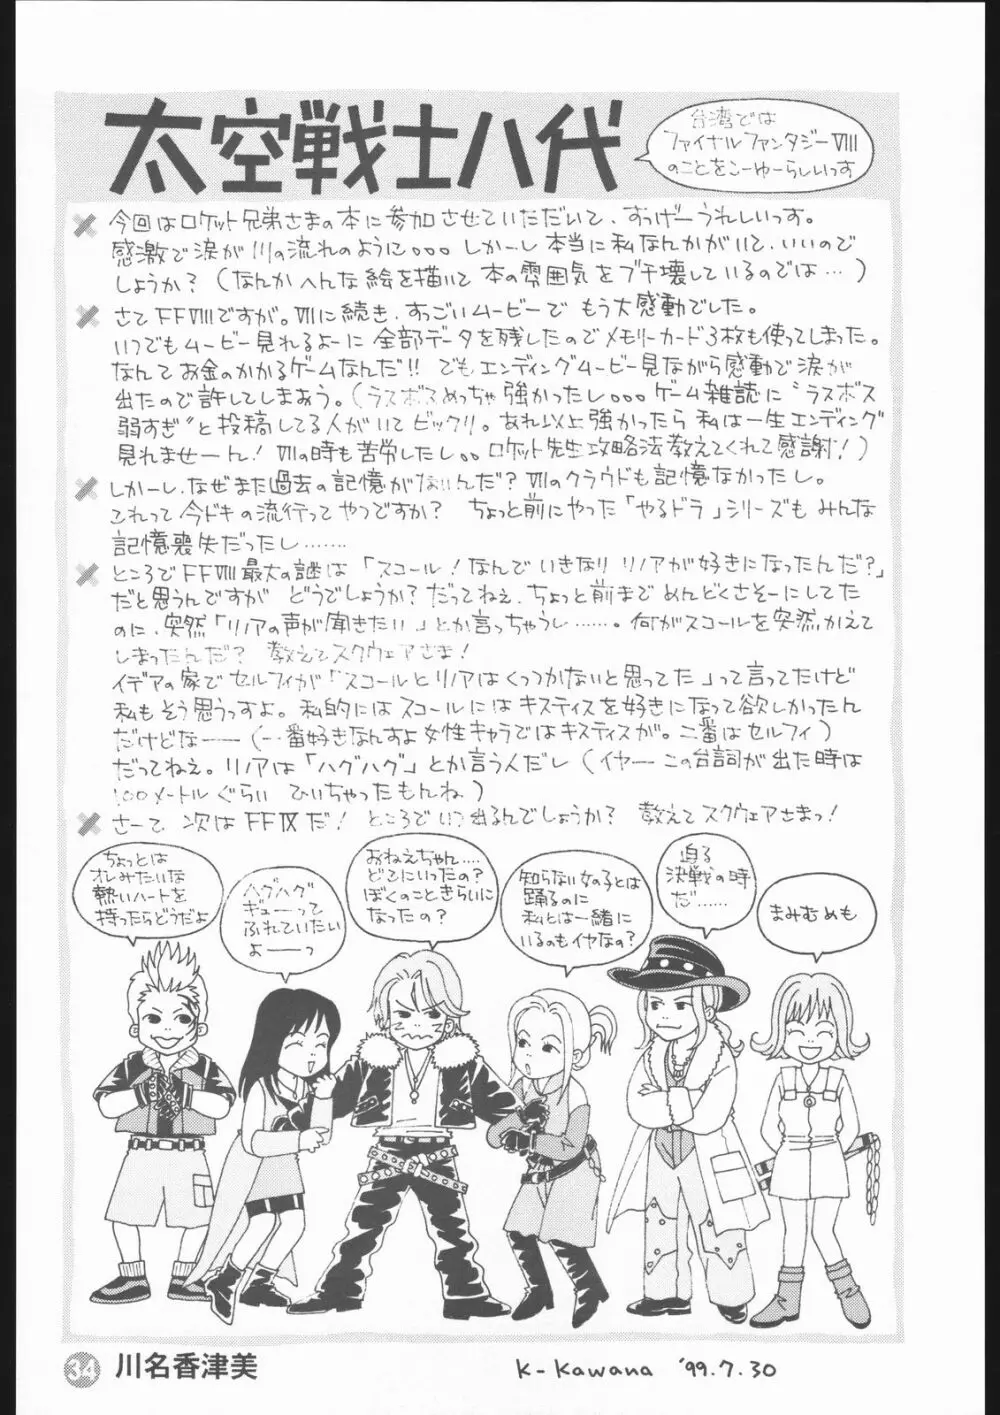 太空戦士八代
台湾では
ファイナルファンタジーVIII
のことをこーゆーらしいっす
今回はロケット兄弟さまの本に参加させていただいて、すっげーうれしいっす。
感激で涙が川の流れのように。。。しかーし本当に私なんかがいて、いいので
しょうか?(なんかへんな絵を描いて本の雰囲気をブチ壊しているのでは…)
さてFFVIIIですが。VIIに続き、すっごいムービーでもう大感動でした。
いつでもムービー見れるよーに全部データを残したのでメモリーカード3枚も使ってしまった。
なんてお金のかかるゲームなんだ!!でもエンディングムービー見ながら感動で涙が
出たので許してしまおう。(ラスボスめっちゃ強かったし。。。ゲーム雑誌に“ラスボス
弱すぎ”と投稿してる人がいてビックリ。あれ以上強かったら私は一生エンディング
見れませーん!VIIの時も苦労したし。。ロケット先生攻略法教えてくれて感謝!)
しかーし、なぜまた過去の記憶がないんだ?VIIのクラウドも記憶なかったし。
これって今ドキの流行ってやつですか? ちょっと前にやった「やるドラ」シリーズもみんな
記憶喪失だったし……
ところでFFVIII最大の謎は「スコール!なんでいきなりリノアが好きになったんだ?」
だと思うんですがどうでしょうか?だってねぇ、ちょっと前までめんどくさそーにしてた
のに、突然「リノアの声が聞きたい」とか言っちゃうし……。何がスコールを突然かえて
しまったんだ? 教えてスクウェアさま!
イデアの家でセルフィが「スコールとリノアはくっつかないと思ってた」って言ってたけど
私もそう思うっすよ。私的にはスコールにはキスティスを好きになって欲しかったん
だけどなー(一番好きなんすよ女性キャラではキスティスが。二番はセルフィ)
だってねぇ。リノアは「ハグハグ」とか言う人だし(イヤーこの台詞が出た時は
100メートルぐらい ひいちゃったもんね)
さーて、次はFFIXだ!ところでいつ出るんでしょうか? 教えてスクウェアさまっ!
ちょっとは
オレみたいな
熱いハートを
持ったらどうだよ
ハグハグ
ギューって
ふれていたい
よーっ
おねえちゃん……
どこにいったの?
ぼくのこときらいに
なったの?
知らない女の子とは
踊るのに
私とは一緒に
いるのもイヤなの?
迫る
決戦の時
だ……
まみむめも
34
川名香津美
K-Kawana '99.7.30